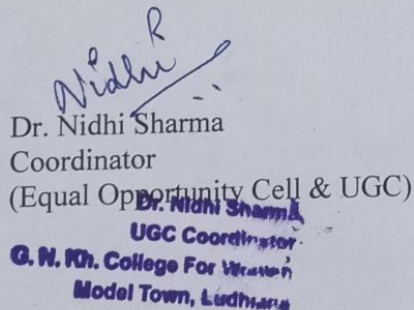 Nidhi
Dr. Nidhi Sharma
Coordinator
(Equal Opportunity Cell & UGC)
Dr. Nidhi Sharma
UGC Coordinator
G. N. Kh. College For Women
Model Town, Ludhiana